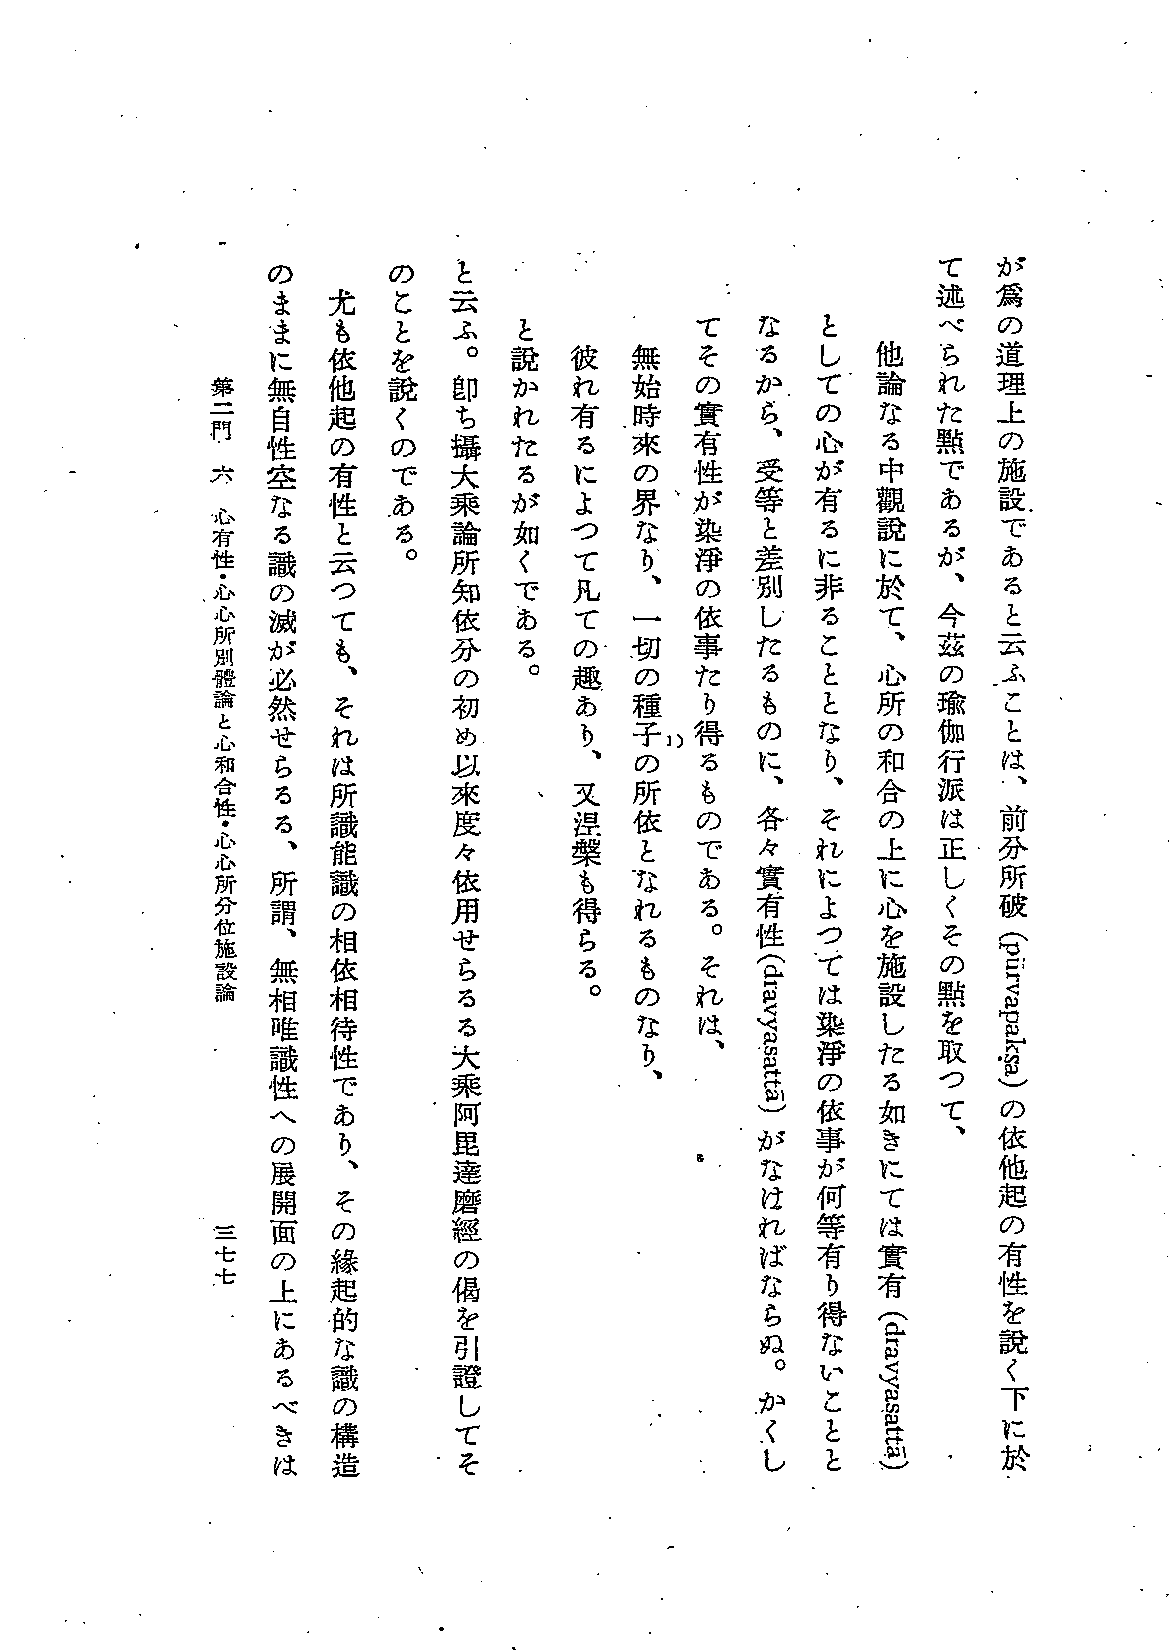 が爲の道理上の施設であると云ふことは、前分所破(pūrvapakṣa)の依他起の有性を說く下に於
て述べられた點であるが、今茲の瑜伽行派は正しくその點を取つて、
他論なる中觀說に於て、心所の和合の上に心を施設したる如きにては實有(dravyasattā)
としての心が有るに非ることとなり、それによつては染淨の依事が何等有り得ないことと
なるから、受等と差別したるものに、各々實有性(dravyasattā)がなければならぬ。かくし
てその實有性が染淨の依事たり得るものである。それは、
無始時來の界なり、一切の種子の所依となれるものなり、1)
彼れ有るによつて凡ての趣あり、又涅槃も得らる。
と說かれたるが如くである。
と云ふ。卽ち攝大乘論所知依分の初め以來度々依用せらるる大乘阿毘達磨經の偈を引證してそ
のことを說くのである。
尤も依他起の有性と云つても、それは所識能識の相依相待性であり、その緣起的な識の構造
のままに無自性空なる識の滅が必然せらるる、所謂、無相唯識性への展開面の上にあるべきは
第二門 六 心有性・心心所別體論と心和合性・心心所分位施設論
三七七